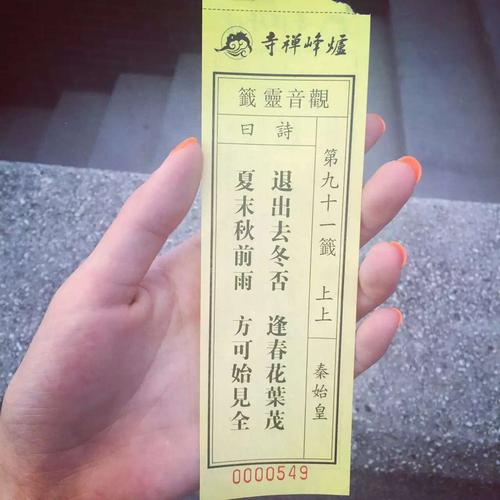 爐峰禪寺
觀音靈籤
第九十一籤 上上 秦始皇
詩曰
退出去冬否 逢春花葉茂
夏末秋前雨 方可始見全
0000549